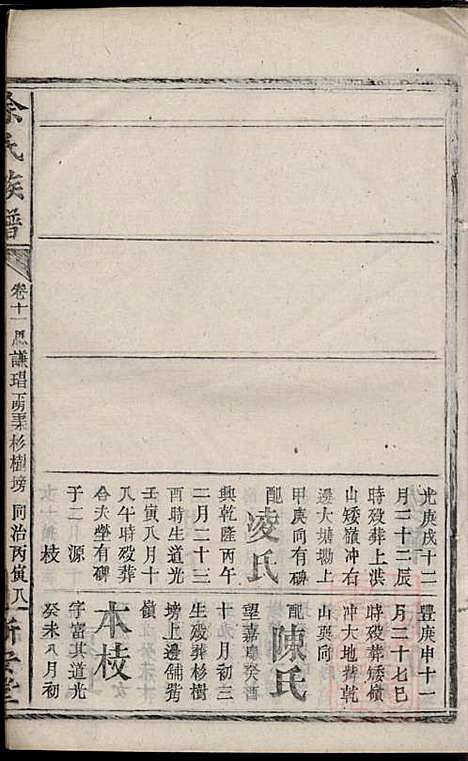 光庚戌十二
月二十二辰
時殁葬上洪
山矮嶺冲右
邊大塘墈上
甲庚向有碑
配凌氏
興乾隆丙午
二月二十三
酉時生道光
壬寅八月十
八午時殁葬
合夫塋有碑
子二 源
枝
豐庚申十一
月二十七巳
時殁葬矮嶺
冲大地背乾
山巽向
配陳氏
望嘉慶癸酒
十九月初三
生殁葬杉樹
塝上邊舖背
嶺
本枝
字富其道光
癸未八月初
余氏族譜
卷十一
思謙瑁
杉樹塝
同治丙寅八
新安堂